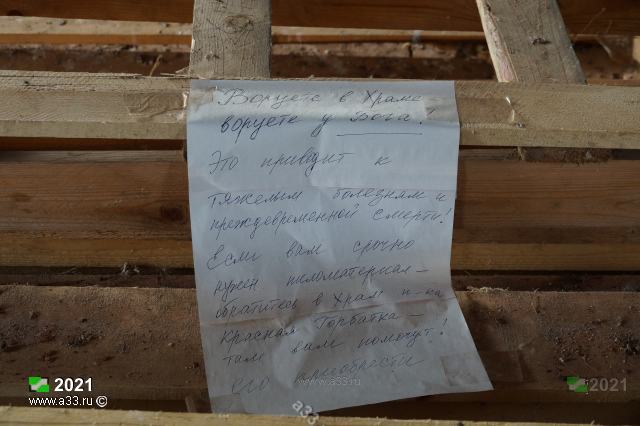 Воруете в Храме
воруете у Бога!
Это приводит к
тяжелым болезням и
преждевременной смерти!
Если вам срочно
нужен пиломатериал –
обратитесь в Храм п-ка
Красная Горбатка –
там вам помогут!
его приобрести
www.a33.ru
a33
2021
www.a33.ru ©
2021